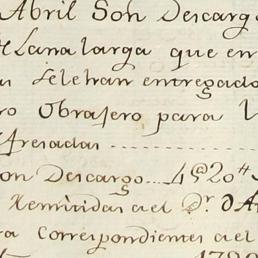 Abril Son Descarg
Lana larga que en
se le han entregado
ro Obrajero para
fresadas
on Descargo.... 4@20tt
Remitidas a el Dr. D A
ra correspondientes a el